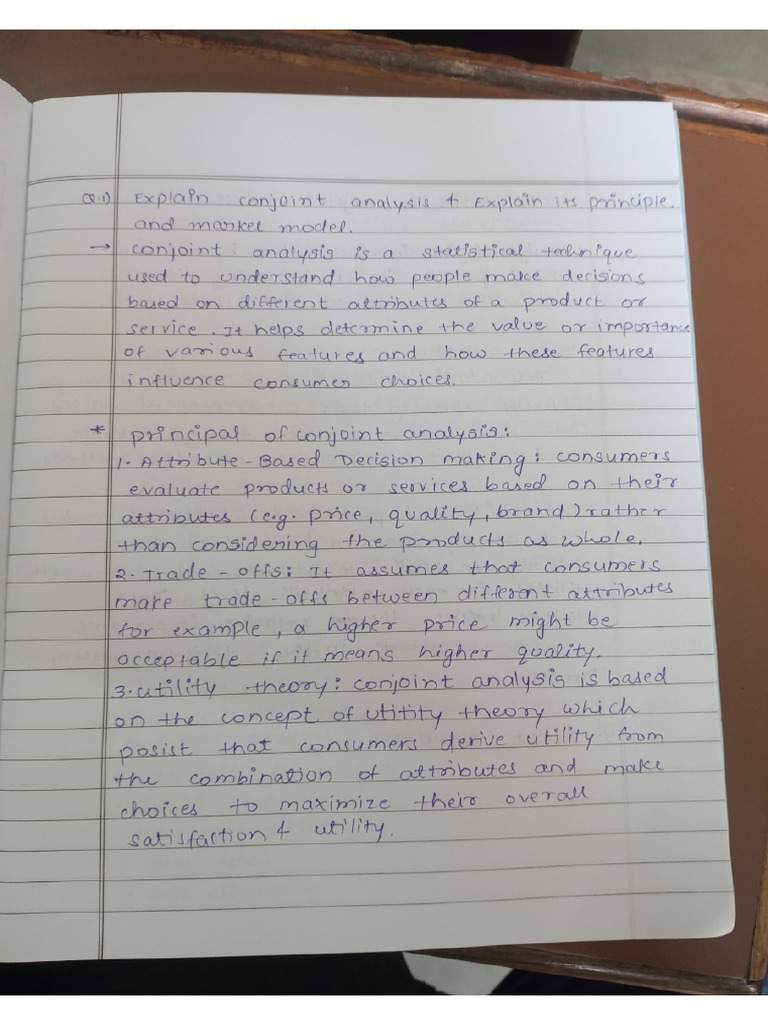 Q.1) Explain conjoint analysis & Explain its principle.
and market model.
→ conjoint analysis is a statistical technique
used to understand how people make decisions
based on different attributes of a product or
service. It helps determine the value or importance
of various features and how these features
influence consumer choices.
* principal of conjoint analysis:
1. Attribute-Based Decision making: consumers
evaluate products or services based on their
attributes (e.g. price, quality, brand) rather
than considering the products as whole.
2. Trade-offs: It assumes that consumers
make trade-offs between different attributes
for example, a higher price might be
acceptable if it means higher quality.
3. utility theory: conjoint analysis is based
on the concept of utitity theory which
posist that consumers derive utility from
the combination of attributes and make
choices to maximize their overall
satisfaction & utility.